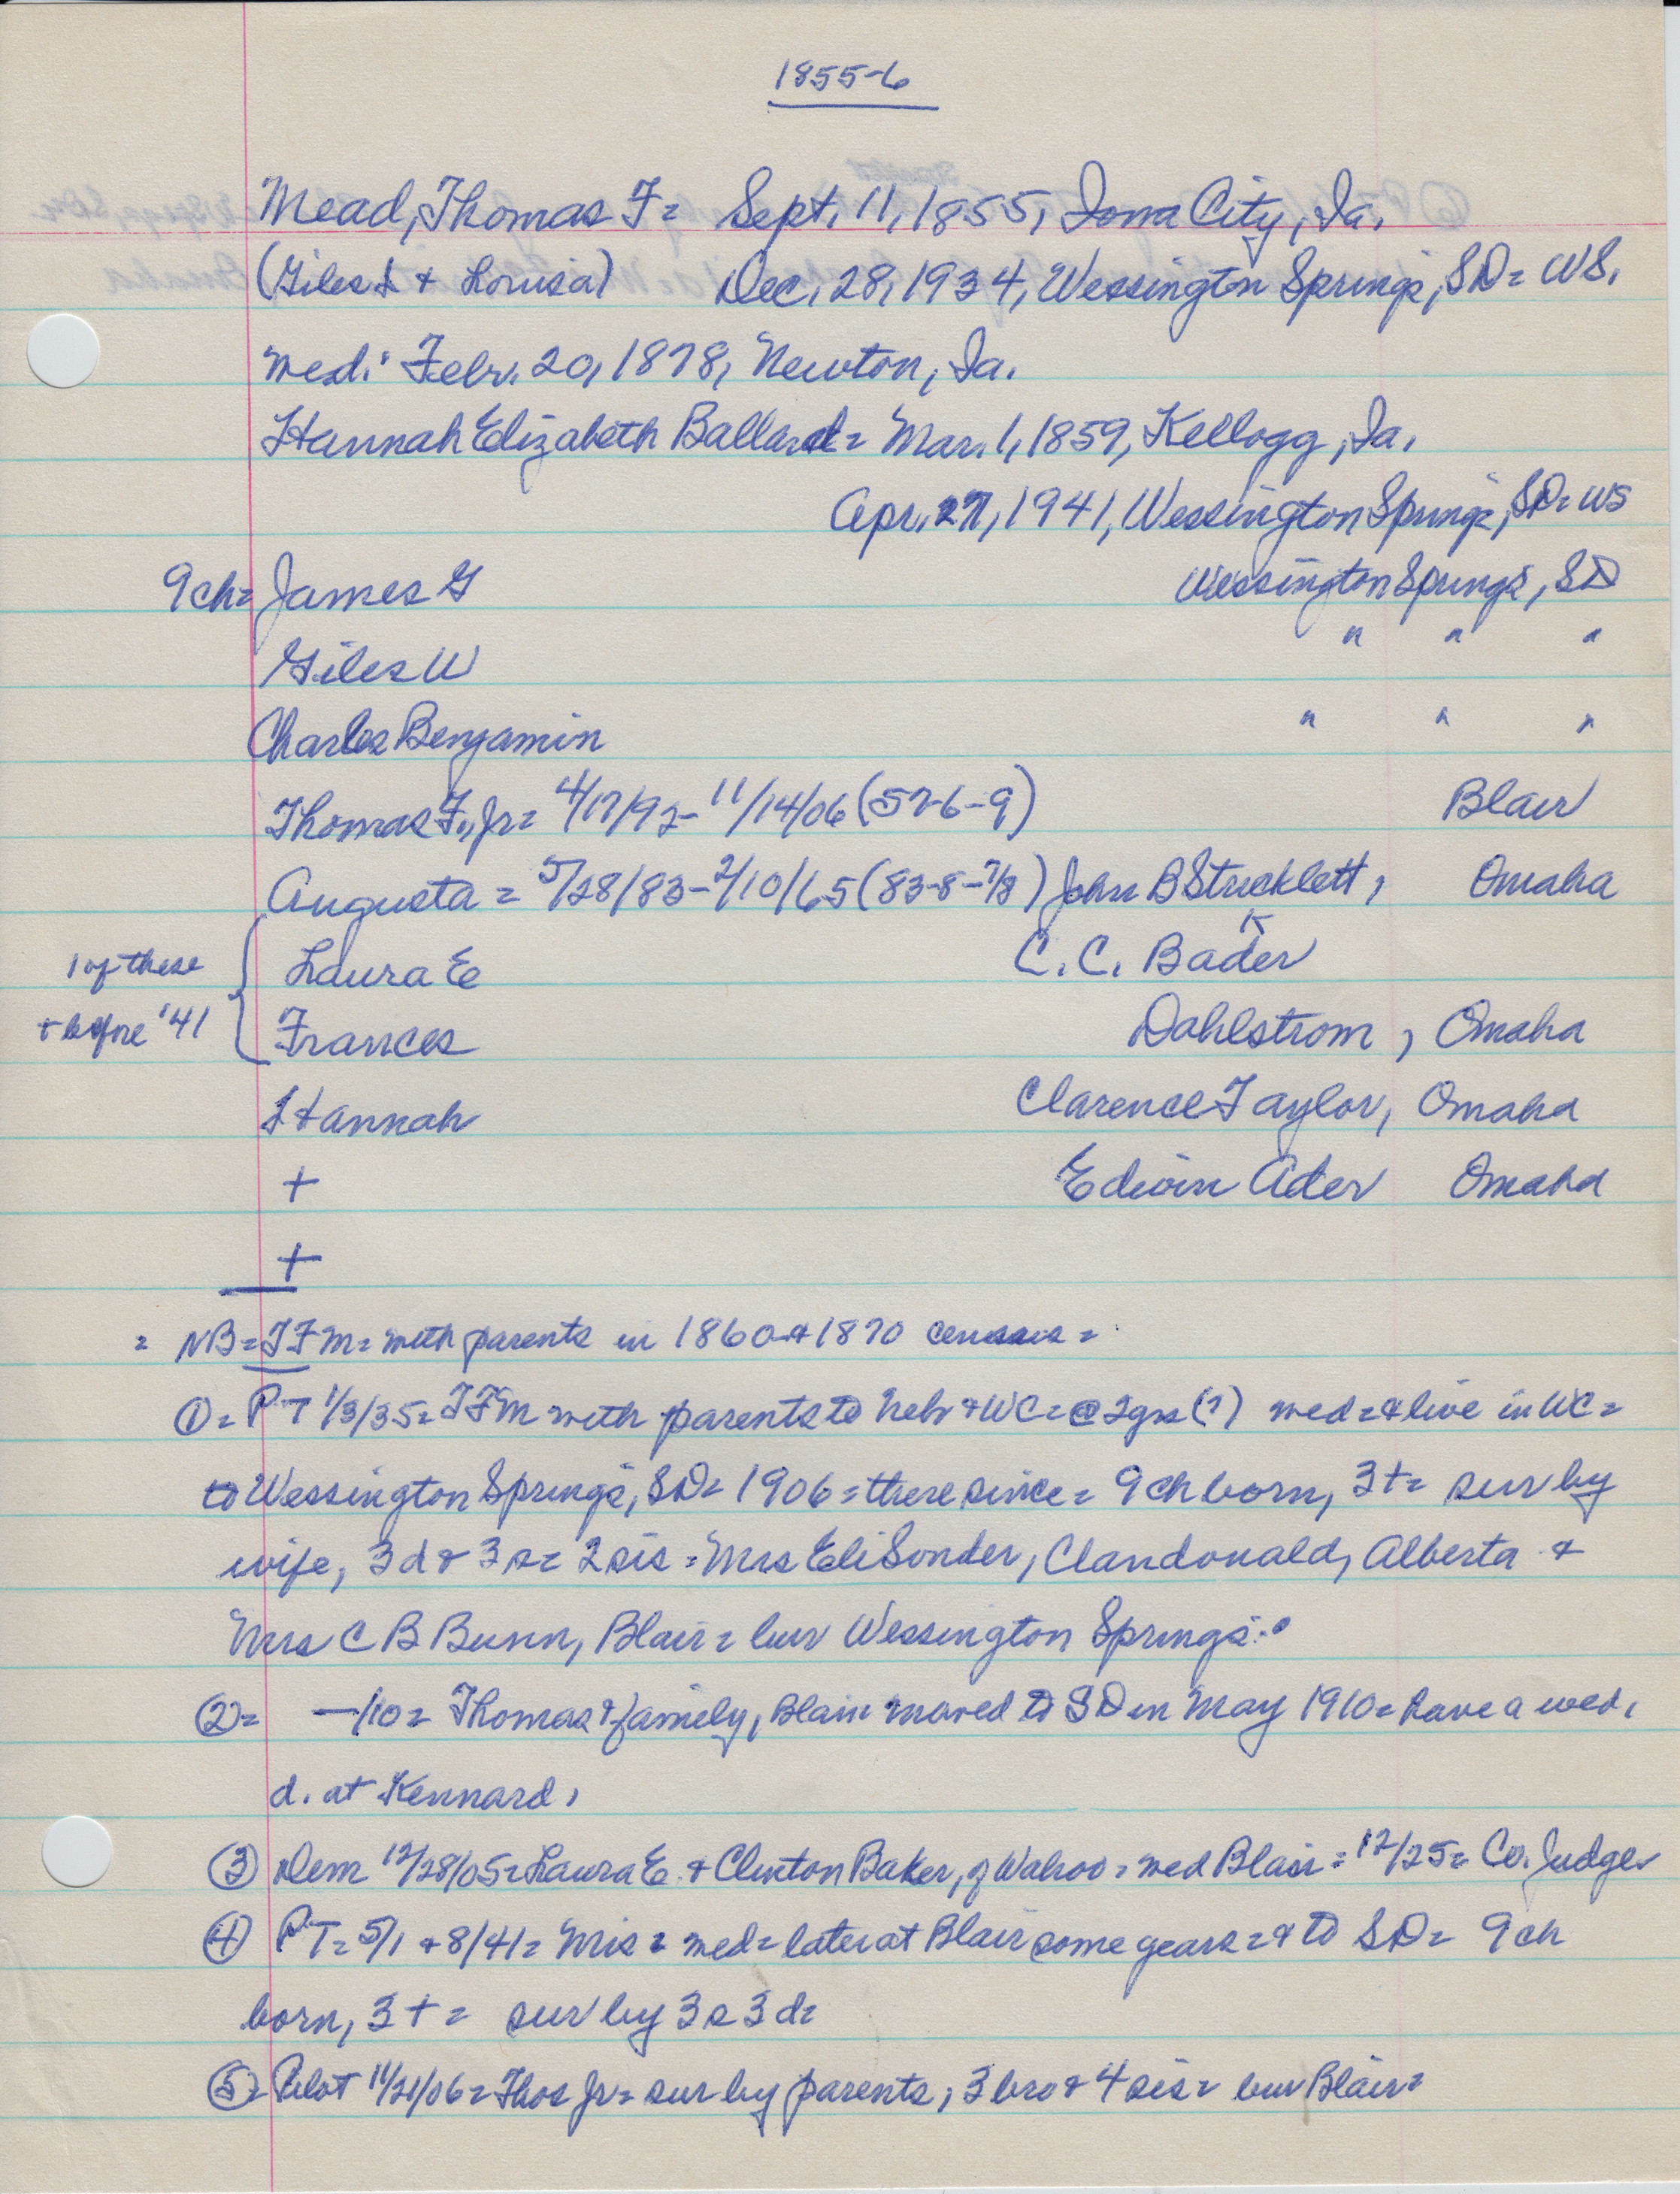 1855-6
Mead, Thomas F = Sept. 11, 1855, Iowa City, Ia.
(Giles L + Louisa) Dec. 28, 1934, Wessington Springs, SD = WS.
med: Febr. 20, 1878, Newton, Ia.
Hannah Elizabeth Ballard = Mar. 1, 1859, Kellogg, Ia.
Apr. 27, 1941, Wessington Springs, SD = WS
9ch = James G Wessington Springs, SD
Giles W " " "
Charles Benjamin " " "
Thomas F., Jr = 4/17/92 - 11/14/06 (57-6-9) Blair
Augusta = 5/28/83 - 2/10/65 (83-8-7/8) John B Strucklett, Omaha
1 of these Laura E C. C. Bader
k
+ before '41 Frances Dahlstrom, Omaha
Hannah Clarence Taylor, Omaha
+ Edwin Ader Omaha
+
= NB = TFM = with parents in 1860 + 1870 census =
① = PT 1/3/35 = TFM with parents to Neb + WC = @ 2yrs (?) med = + live in WC =
to Wessington Springs, SD = 1906 = there since = 9 ch born, 3+ = sur by
wife, 3 d + 3 s = 2 sis = Mrs Eli Sonder, Clandonald, Alberta +
Mrs C B Bunn, Blair = bur Wessington Springs
② = —/10 = Thomas + family, Blair moved to SD in May 1910 = have a med.
d. at Kennard,
③ Dem 12/28/05 = Laura E. + Clinton Baker, of Wahoo = med Blair = 12/25 = Co. Judge
④ PT = 5/1 + 8/41 = Mrs = med = later at Blair some years = + to SD = 9 ch
born, 3 + = sur by 3 s 3 d =
⑤ = Pilot 11/21/06 = Thos Jr = sur by parents, 3 bro + 4 sis = bur Blair =